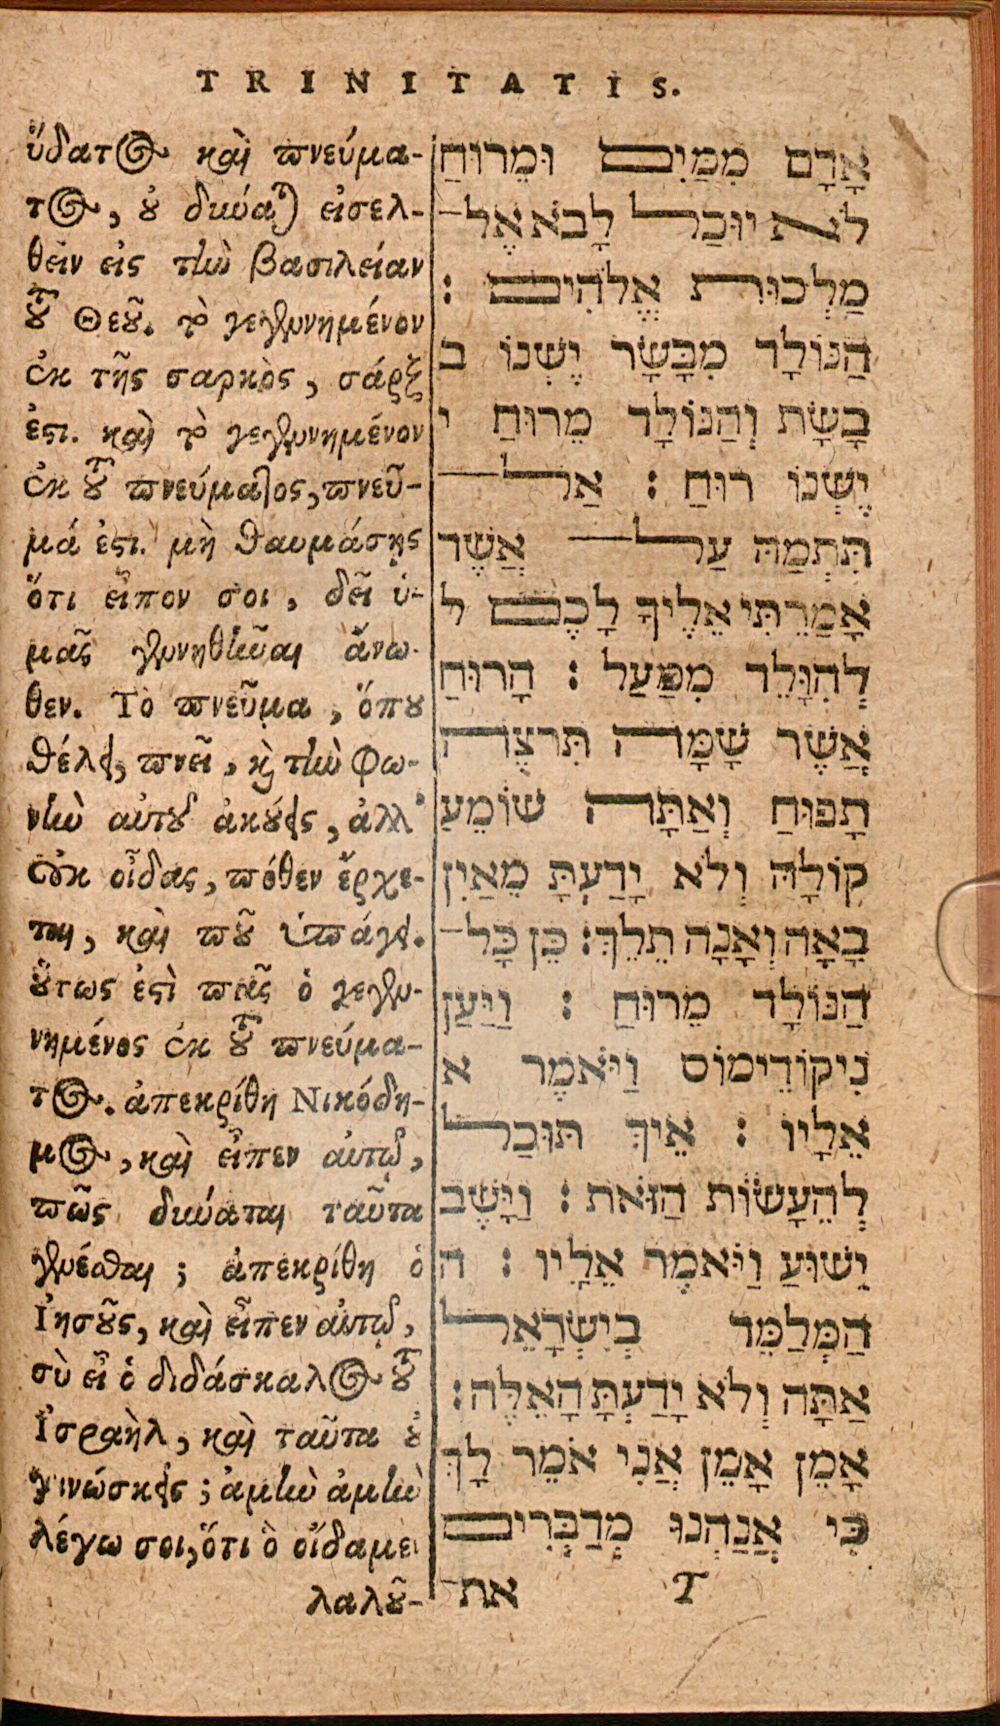 TRINITATIS.
ὕδατος καὶ πνεύμα-
τος, οὐ δύναται εἰσελ-
θεῖν εἰς τὴν βασιλείαν
τοῦ Θεοῦ. τὸ γεγεννημένον
ἐκ τῆς σαρκὸς, σάρξ
ἐστι. καὶ τὸ γεγεννημένον
ἐκ τοῦ πνεύματος, πνεῦ-
μά ἐστι. μὴ θαυμάσῃς
ὅτι εἶπον σοι, δεῖ ὑ-
μᾶς γεννηθῆναι ἄνω-
θεν. Τὸ πνεῦμα, ὅπου
θέλει, πνεῖ, καὶ τὴν φω-
νὴν αὐτοῦ ἀκούεις, ἀλλ'
οὐκ οἶδας, πόθεν ἔρχε-
ται, καὶ ποῦ ὑπάγει.
οὕτως ἐστὶ πᾶς ὁ γεγεν-
νημένος ἐκ τοῦ πνεύμα-
τος. ἀπεκρίθη Νικόδη-
μος, καὶ εἶπεν αὐτῷ,
πῶς δύναται ταῦτα
γενέσθαι; ἀπεκρίθη ὁ
Ἰησοῦς, καὶ εἶπεν αὐτῷ,
σὺ εἶ ὁ διδάσκαλος τοῦ
Ἰσραὴλ, καὶ ταῦτα οὐ
γινώσκεις; ἀμὴν ἀμὴν
λέγω σοι, ὅτι ὃ οἴδαμεν
λαλοῦ-
אָדָם מִמַּיִם וּמֵרוּחַ
לֹא יוּכַל לָבֹא אֶל־
מַלְכוּת אֱלֹהִים׃
הַנּוֹלָד מִבָּשָׂר יֶשְׁנוֹ ב
בָשָׂת וְהַנּוֹלָד מֵרוּחַ י
יֶשְׁנוֹ רוּחַ׃ אַל־
תִּתְמַהּ עַל־ אֲשֶׁר
אָמַרְתִּי אֵלֶיךָ לָכֶם ל
לְהִוָּלֵד מִמַּעַל׃ הָרוּחַ
אֲשֶׁר שָׁמָּה תִּרְצֶה
תָפוּחַ וְאַתָּה שׁוֹמֵעַ
קוֹלָהּ וְלֹא יָדַעְתָּ מֵאַיִן
בָּאָה וְאָנָה תֵלֵךְ׃ כֵּן כָּל־
הַנּוֹלָד מֵרוּחַ׃ וַיַּעַן
נִיקוֹדֵימוֹס וַיֹּאמֶר א
אֵלָיו׃ אֵיךְ תּוּכַל
לְהֵעָשׂוֹת הַזֹּאת׃ וַיָּשֶׁב
יֵשׁוּעַ וַיֹּאמֶר אֵלָיו׃ ה
הַמְלַמֵּד בְּיִשְׂרָאֵל
אַתָּה וְלֹא יָדַעְתָּ הָאֵלֶּה׃
אָמֵן אָמֵן אֲנִי אֹמֵר לָךְ
כִּי אֲנַחְנוּ מְדַבְּרִים
T את־